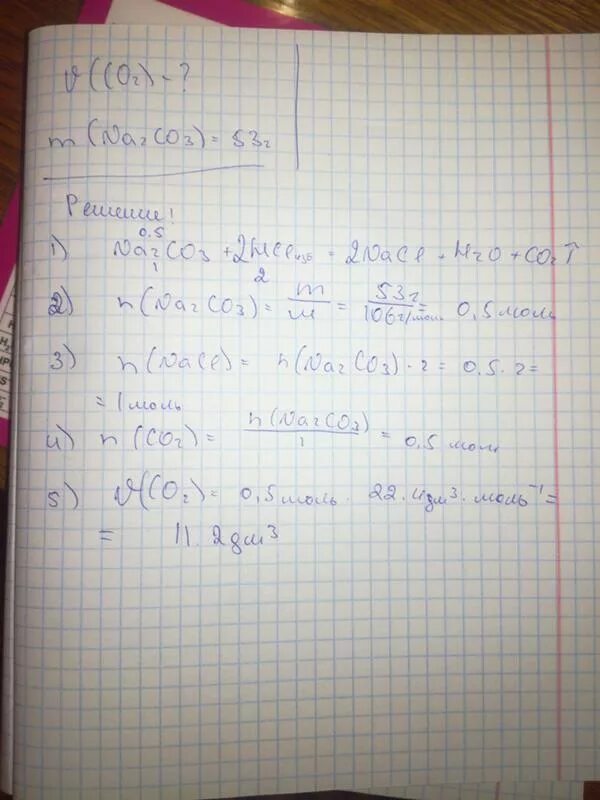 V(CO₂) - ?
m(Na₂CO₃) = 53г
Решение!
0.5
1) Na₂CO₃ + 2HCl изб = 2NaCl + H₂O + CO₂↑
1 2
2) n(Na₂CO₃) = m/M = 53г/106г/моль = 0,5 моль
3) n(NaCl) = n(Na₂CO₃) · 2 = 0.5 · 2 =
= 1 моль
4) n(CO₂) = n(Na₂CO₃)/1 = 0.5 моль
5) V(CO₂) = 0,5 моль · 22.4 дм³ · моль⁻¹ =
= 11.2 дм³